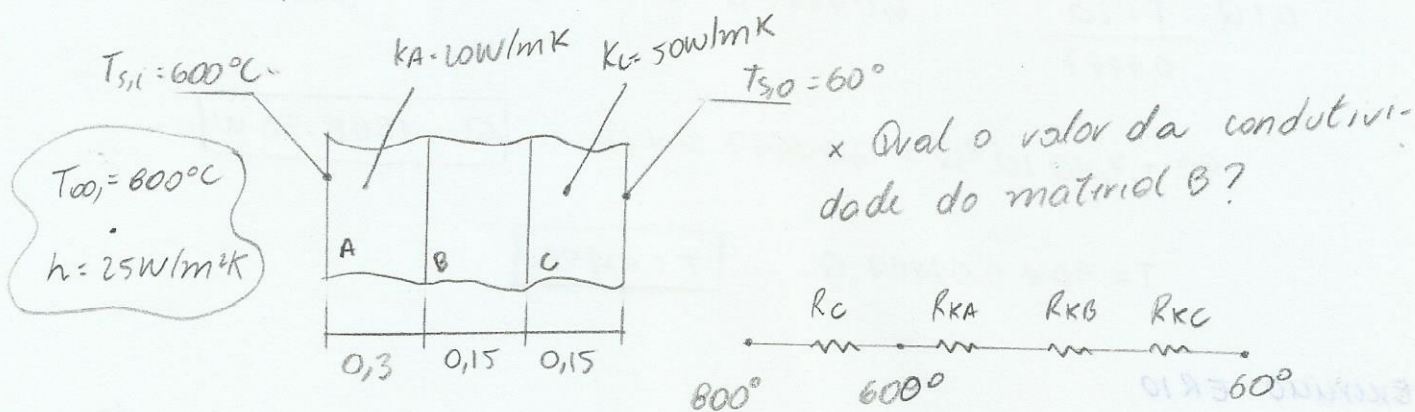 T_s,i = 600°C
kA = 20W/mK
Kc = 50W/mK
Ts,o = 60°
T∞, = 800°C
h = 25W/m²K
A B C
0,3 0,15 0,15
x Qual o valor da condutivi-
dade do material B?
Rc RKA RKB RKC
800° 600° 60°